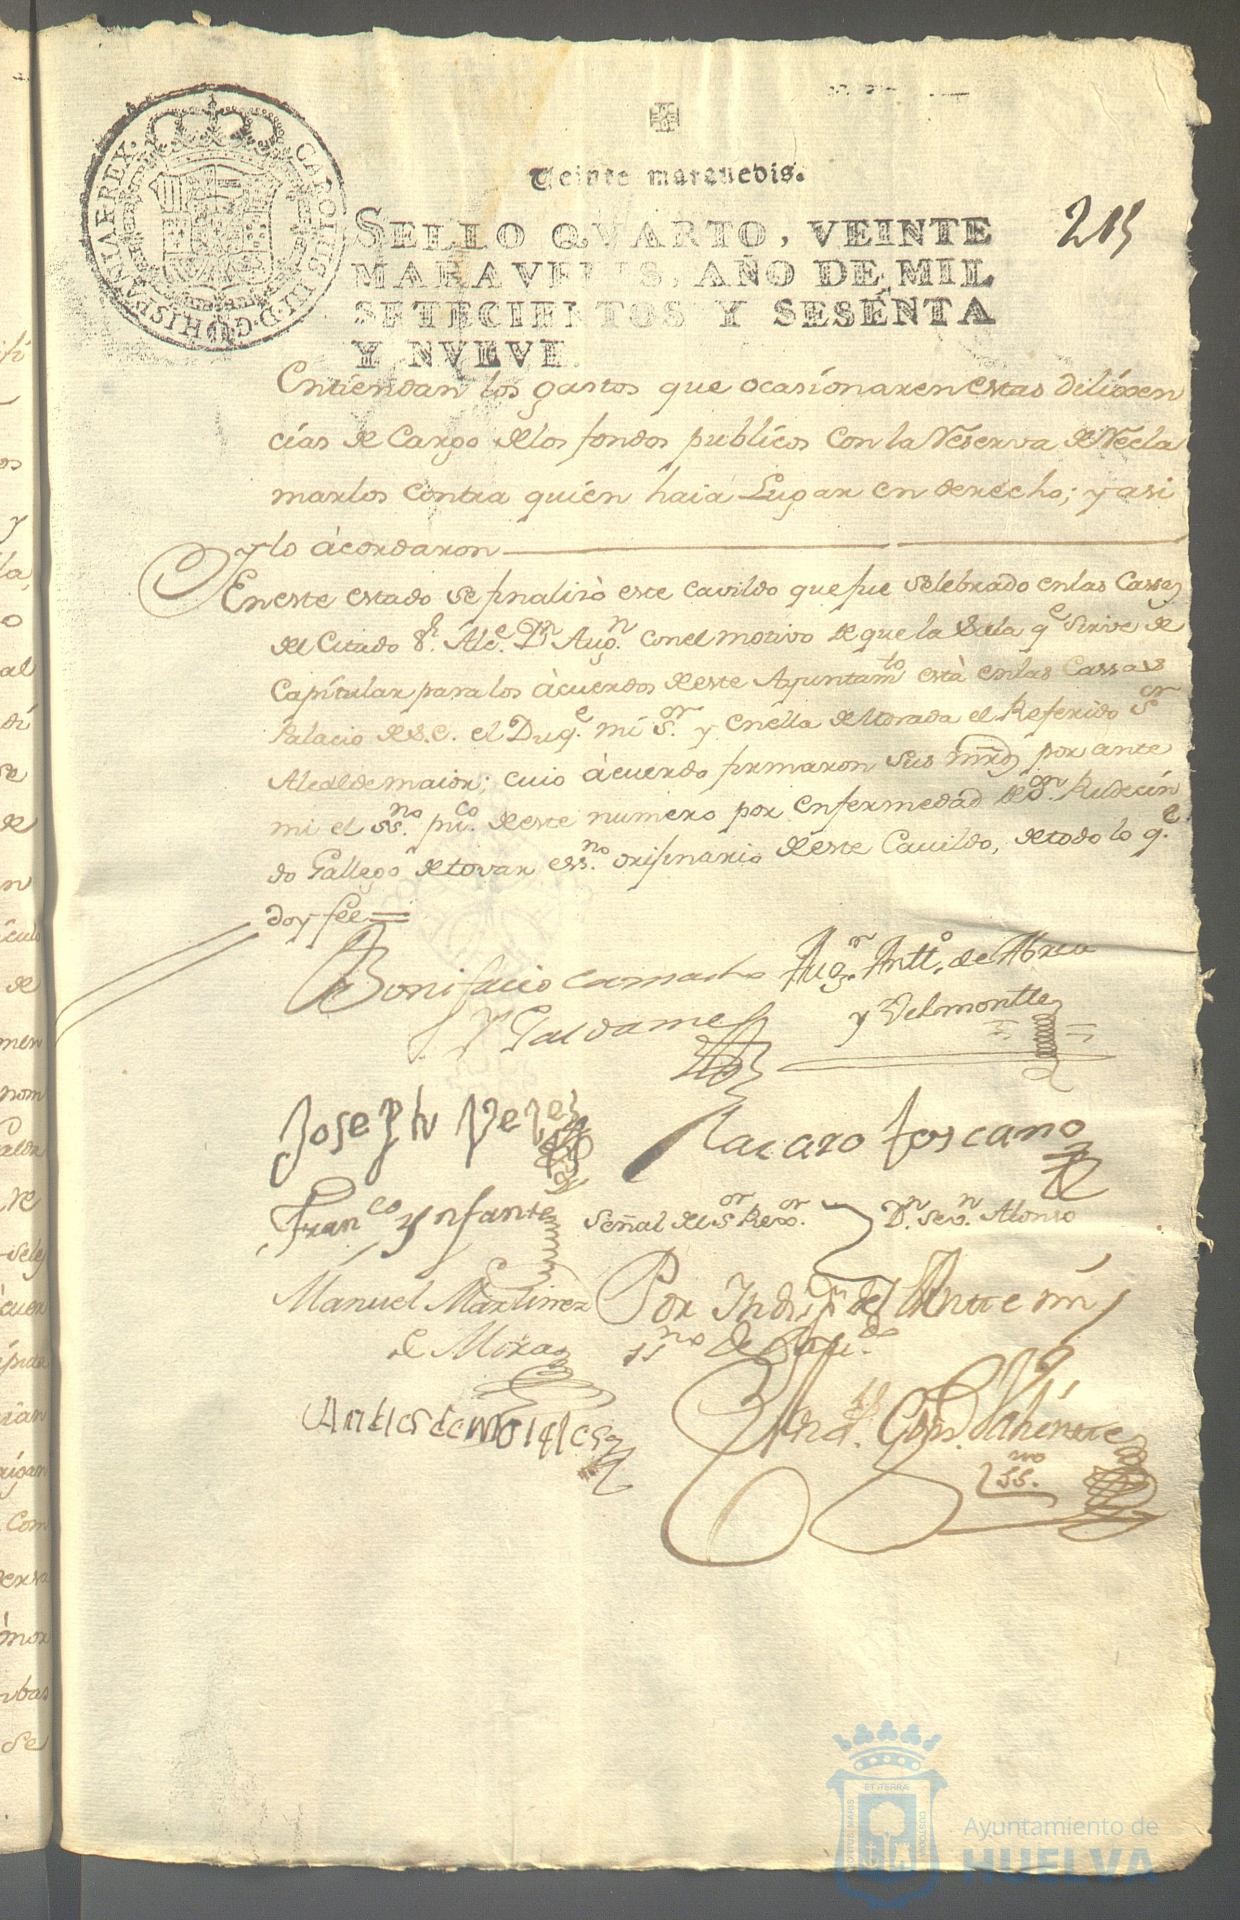 Veinte maravedis.
SELLO QVARTO, VEINTE
MARAVEDIS, AÑO DE MIL
SETECIENTOS Y SESENTA
Y NVEVE.
CAROLUS III D.G. HISPANIAR REX
215
Entiendan los gastos que ocasionaren estas dilixen
cias de Cargo de los fondos publicos con la Reserva de Recla
marlos contra quien haia Lugar en derecho; y asi
y lo acordaron
En este estado se finalizò este cavildo que fue selebrado en las Cassas
del Citado Sr. Alce. Dn. Augn. con el motivo de que la Sala qe sirve de
Capitular para los àcuerdos de este Ayuntamto està en las Cassas
Palacio de S.E. el Duqe. mi Sor. y en ella de Morada el Referido Sor
Alcalde maior; cuio àcuerdo firmaron sus mrds por ante
mi el ssno. puco. de este numero por enfermedad de Dn. Redecin
do Gallego de tovar essno. orijinario de este Cavildo, de todo lo qe.
doy fee
Bonifacio Camacho
y Galdames
Augn. Antto. de Abreu
y Velmontte
Joseph Perez
Lazaro Toscano
Franco Ynfante
Señal del Sor Rexor.
Dn. Sevn. Alonso
Manuel Martinez
de Mora
Por Indispn. del
ssno de Cavdo.
Ante mi
Andres de
ssno
Ayuntamiento de
HUELVA